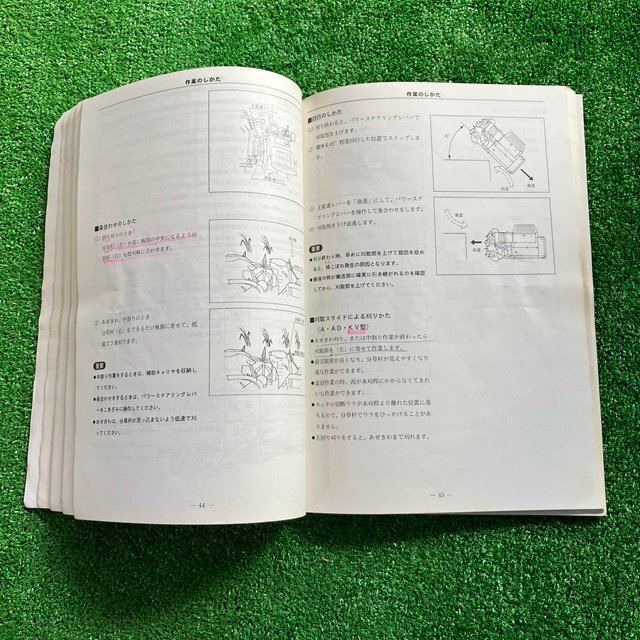 作業のしかた
■条合わせのしかた
(1) 割り刈りのとき
分草杆(左)が常に株間の中央になるよう分
草杆(右)を既刈株に合わせます。
(2) あぜぎわ、中割りのとき
分草杆(右)をできるだけ株側に寄せて、低
速で3条刈ります。
重要
●中割り作業をするときは、補助キャリヤを収納し
てください。
●条合わせをするときは、パワーステアリングレバ
ーをこきざみに操作してください。
●あぜぎわは、分草杆が突っ込まないよう低速で刈
ってください。
— 44 —
作業のしかた
■回行のしかた
(1) 刈り終わると、パワーステアリングレバーで
刈取部を上げます。
(2) 機体を45°程度回行した位置でストップしま
す。
45°
前進
後進
(3) 主変速レバーを「後進」にして、パワーステ
アリングレバーを操作して条合わせをします。
(4) 刈取部を下げ前進します。
後進
前進
重要
●刈り終わり時、早めに刈取部を上げて旋回を始め
ると、扱こぼれ発生の原因となります。
●最後の稈が搬送部に確実に引き継がれるのを確認
してから、刈取部を上げてください。
■刈取スライドによる刈りかた
(A・AD・KV型)
●あぜぎわ刈り、または中割り作業が終わったら
刈取部を(左)に寄せて作業します。
●前方視界が良くなり、分草杆が見えやすくなり
楽な作業ができます。
●湿田作業の時、泥が未刈稈にかからなくてきれ
いな作業ができます。
●カッタの切断ワラが未刈稈より離れた位置に落
ちるので、分草杆でワラをひっかけることがあ
りません。
●左回り刈りをすると、あぜぎわまで刈れます。
— 45 —